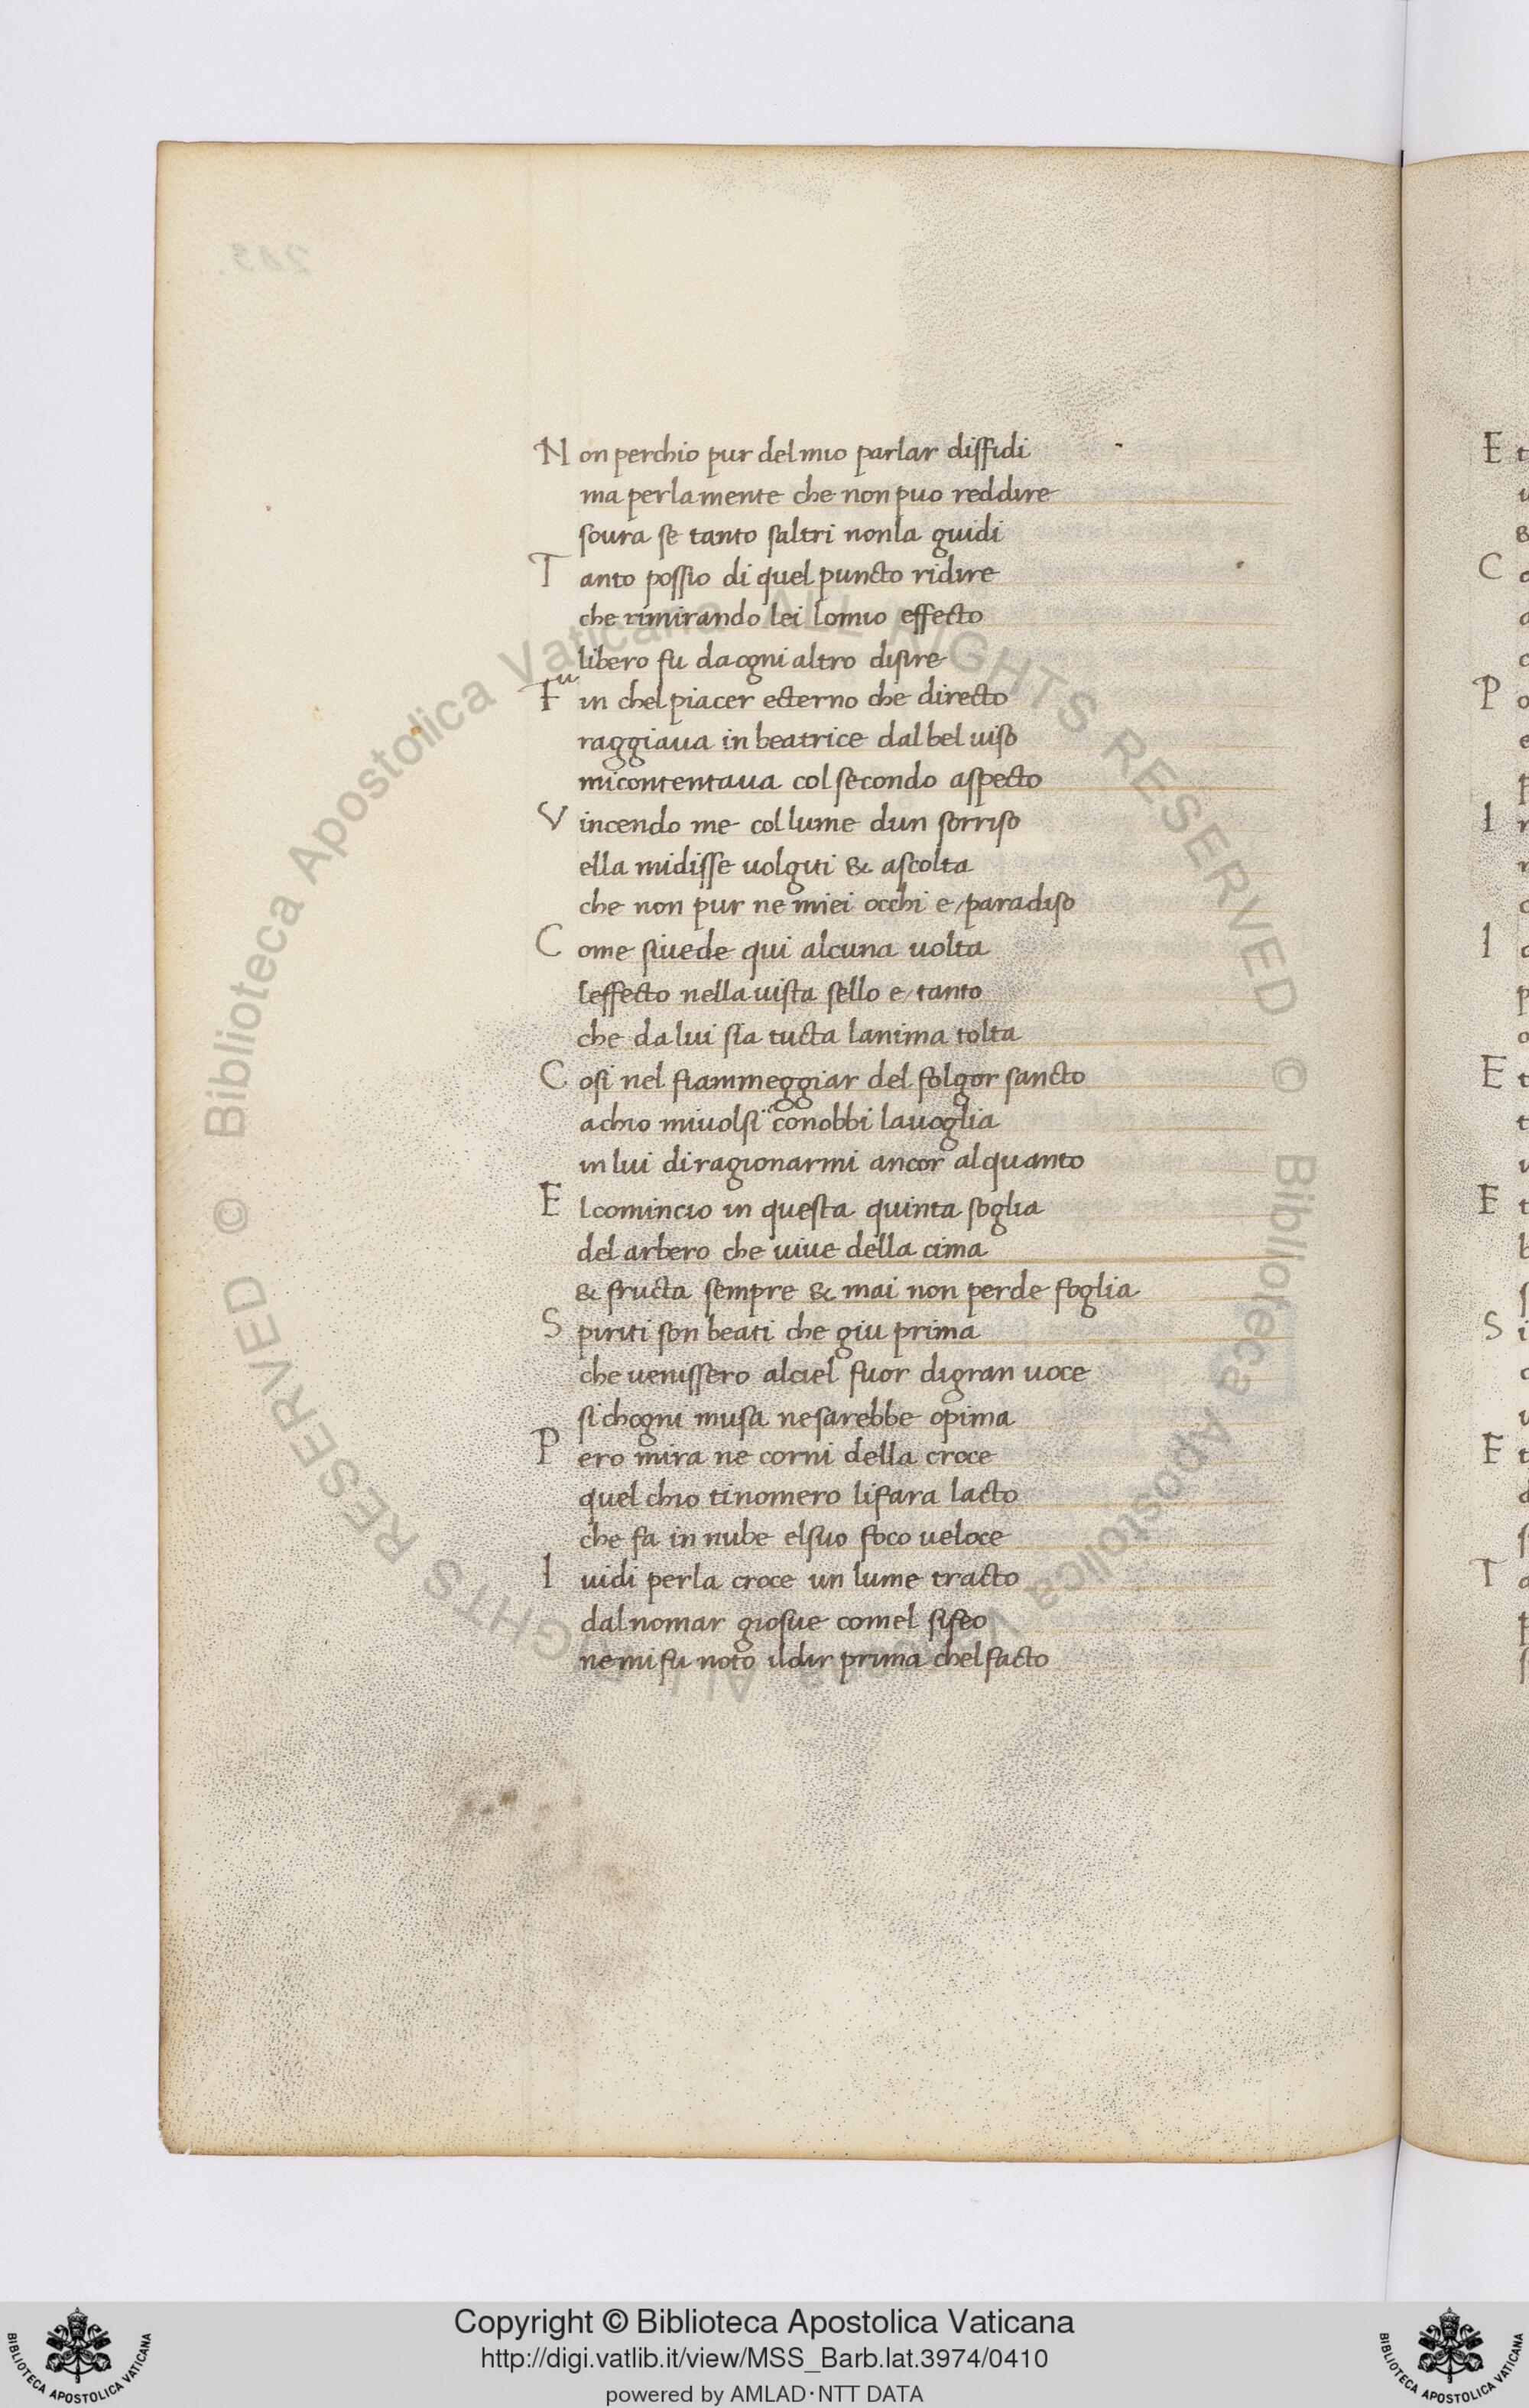 Non perchio pur del mio parlar diffidi
ma perla mente che non puo reddire
soura se tanto saltri nonla guidi
Tanto possio di quel puncto ridire
che rimirando lei lomio effecto
libero fu da ogni altro disire
Fu in chel piacer ecterno che directo
raggiaua in beatrice dal bel uiso
micontentaua col secondo aspecto
Vincendo me col lume dun sorriso
ella midisse uolguti & ascolta
che non pur ne miei occhi e/paradiso
Come siuede qui alcuna uolta
leffecto nella uista sello e/tanto
che da lui sia tucta lanima tolta
Cosi nel fiammeggiar del folgor sancto
achio miuolsi conobbi lauoglia
in lui diragionarmi ancor alquanto
El comincio in questa quinta soglia
del arbero che uiue della cima
& fructa sempre & mai non perde foglia
Spiriti son beati che giu prima
che uenissero alciel fuor digran uoce
si chogni musa nesarebbe opima
Pero mira ne corni della croce
quel chio tinomero lifara lacto
che fa in nube elsuo foco ueloce
I uidi perla croce un lume tracto
dalnomar giosue comel sifeo
nemifu noto ildir prima chelfacto
203.
E t
C
P o
I
I
E t
E t
S i
E t
T a
© Biblioteca Apostolica Vaticana ALL RIGHTS RESERVED © Biblioteca Apostolica Vaticana ALL RIGHTS RESERVED
Copyright © Biblioteca Apostolica Vaticana
http://digi.vatlib.it/view/MSS_Barb.lat.3974/0410
powered by AMLAD·NTT DATA
BIBLIOTECA APOSTOLICA VATICANA
BIBLIOTECA APOSTOLICA VATICANA